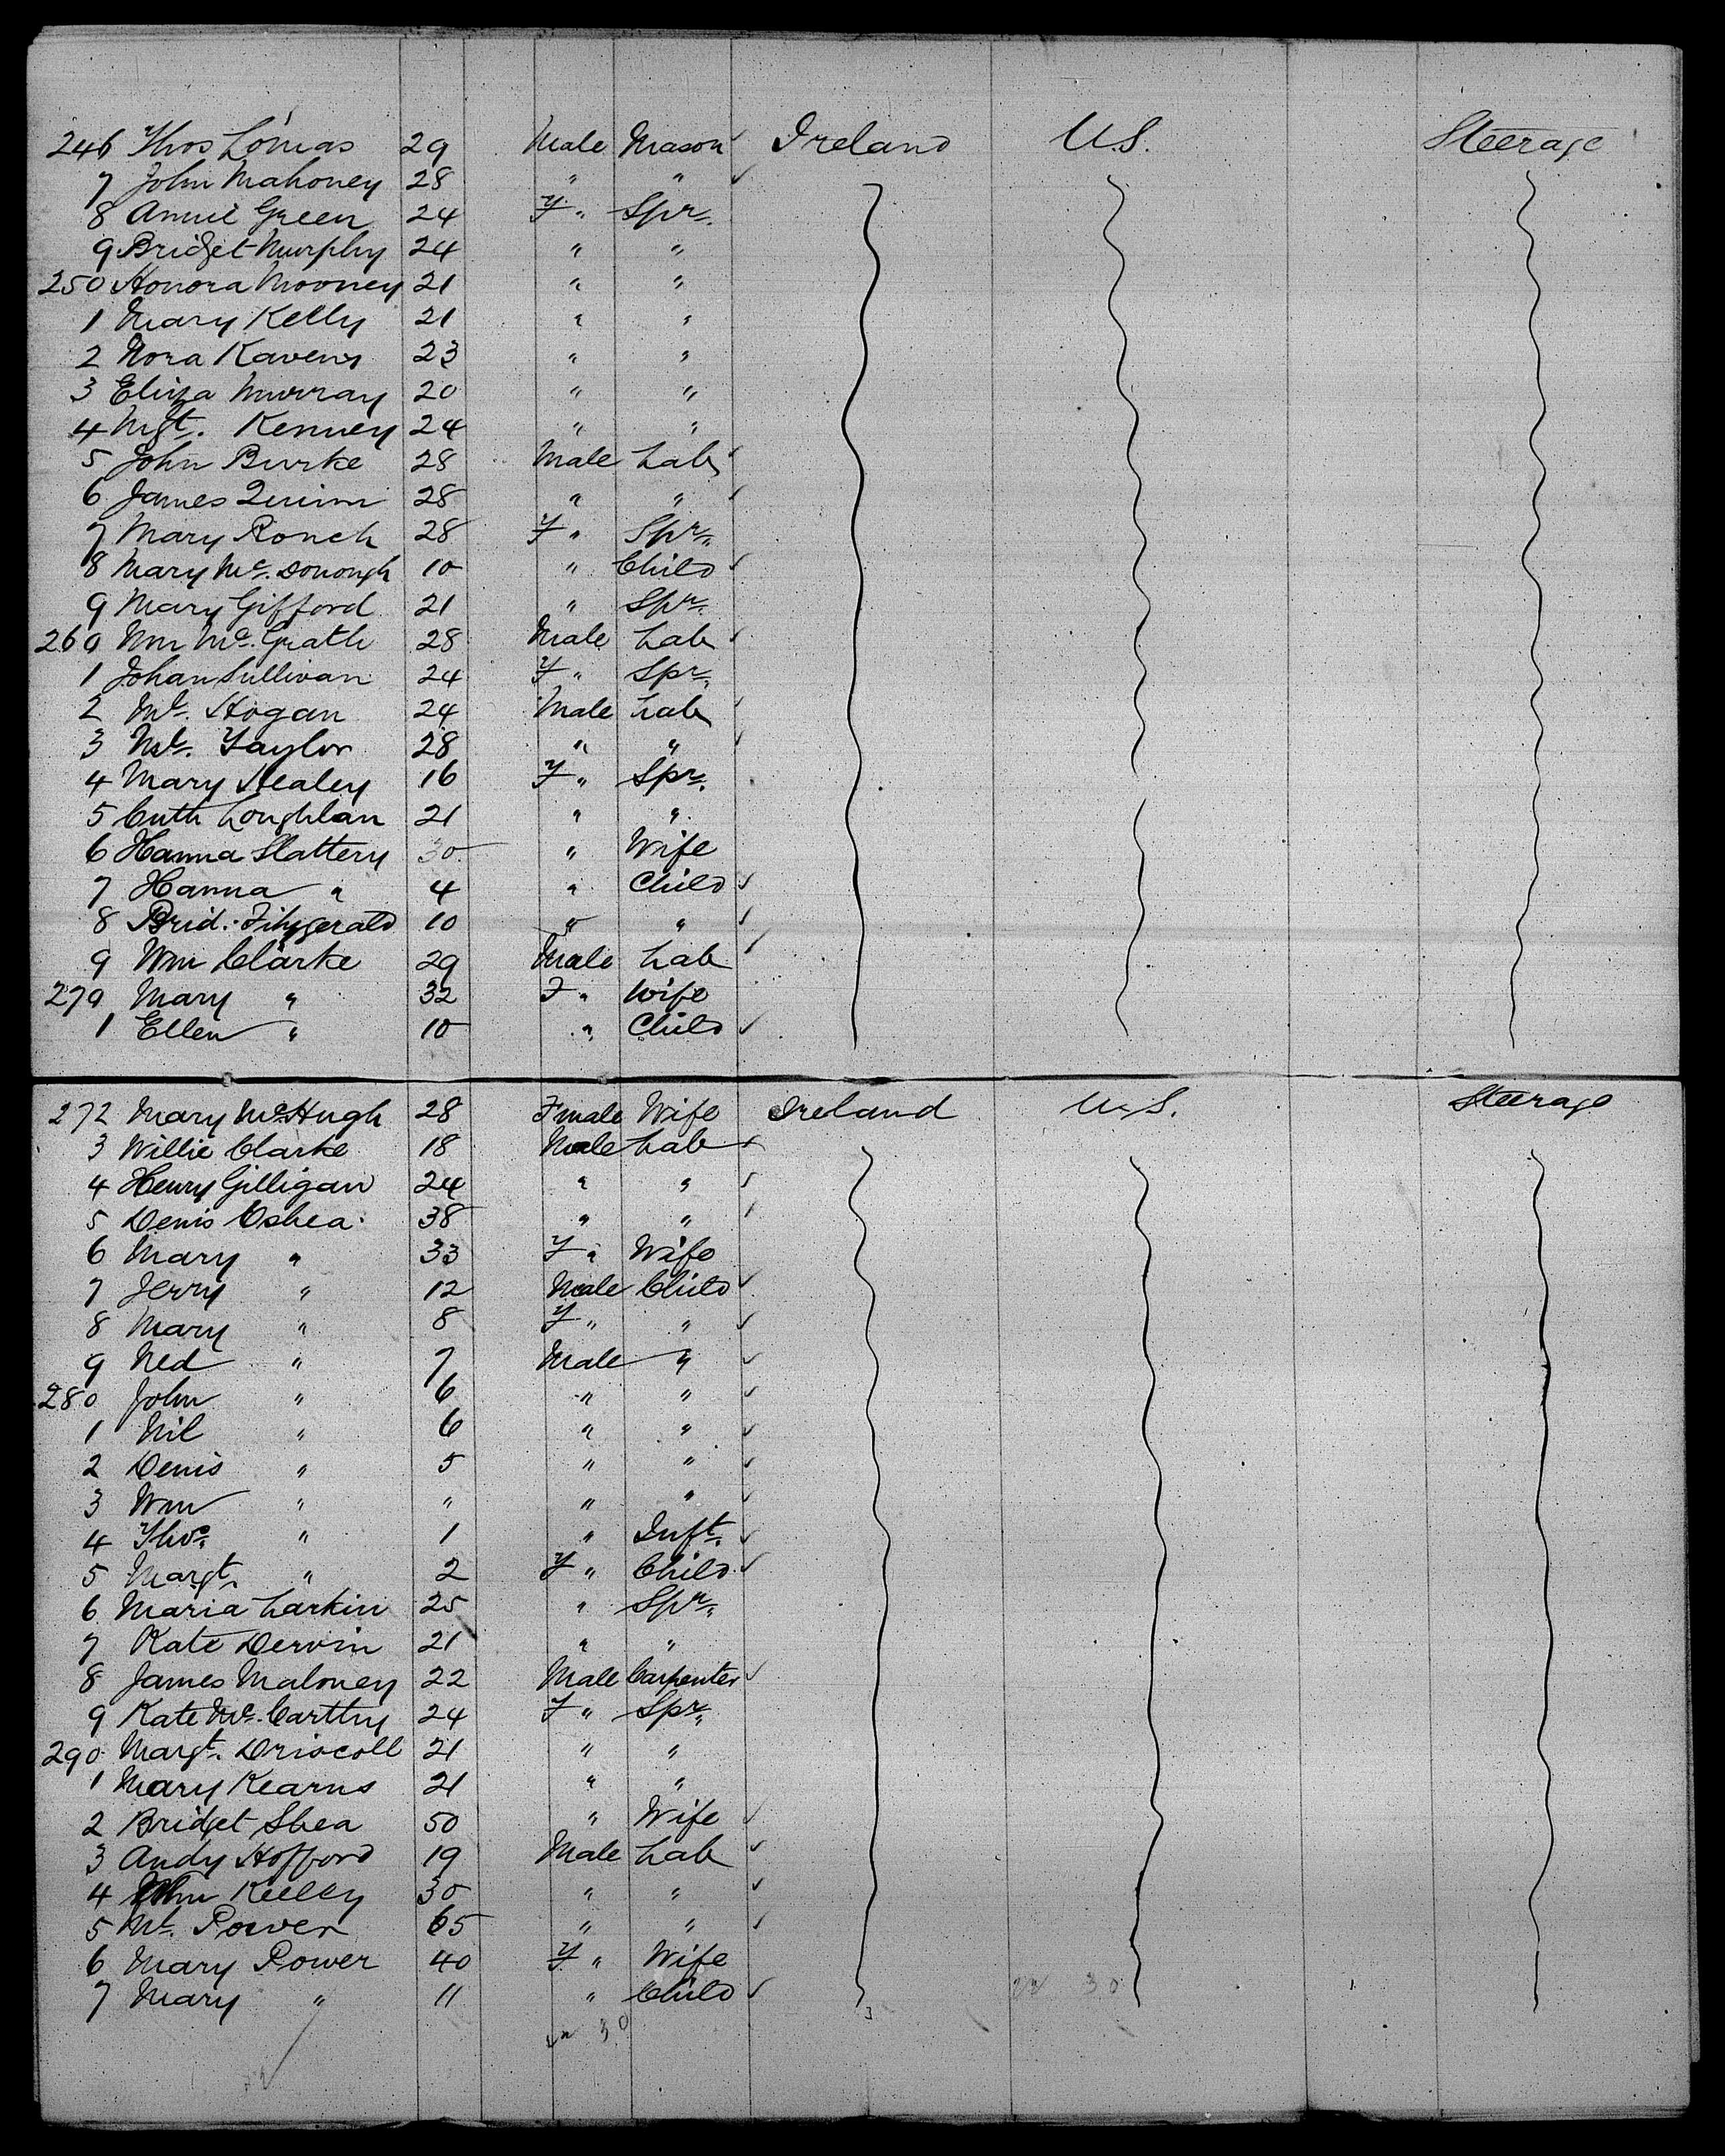 246 Thos Lomas 29 Male Mason Ireland U.S. Steerage
7 John Mahoney 28 " "
8 Annie Green 24 F " Spr.
9 Bridget Murphy 24 " "
250 Honora Mooney 21 " "
1 Mary Kelly 21 " "
2 Nora Kavens 23 " "
3 Eliza Murray 20 " "
4 Mgt. Kenney 24 " "
5 John Burke 28 Male Lab
6 James Quinn 28 " "
7 Mary Ronch 28 F " Spr.
8 Mary Mc. Donough 10 " Child
9 Mary Gifford 21 " Spr.
260 Wm Mc. Grath 28 Male Lab
1 Johan Sullivan 24 F " Spr.
2 Ml. Hogan 24 Male Lab
3 Ml. Taylor 28 " "
4 Mary Healey 16 F " Spr.
5 Cath Loughlan 21 " "
6 Hanna Slattery 30 " Wife
7 Hanna " 4 " Child
8 Brid. Fitzgerald 10 " "
9 Wm Clarke 29 Male Lab
270 Mary " 32 F " Wife
1 Ellen " 10 " Child
272 Mary McHugh 28 Fmale Wife Ireland U.S. Steerage
3 Willie Clarke 18 Male Lab
4 Henry Gilligan 24 " "
5 Denis Oshea 38 " "
6 Mary " 33 F " Wife
7 Jerry " 12 Male Child
8 Mary " 8 F " "
9 Ned " 7 Male "
280 John " 6 " "
1 Nil " 6 " "
2 Denis " 5 " "
3 Wm " " " "
4 Thos. " 1 " Inft.
5 Margt. " 2 F " Child
6 Maria Larkin 25 " Spr.
7 Kate Dervin 21 " "
8 James Maloney 22 Male Carpenter
9 Kate Mc. Carthy 24 F " Spr.
290 Margt. Driscoll 21 " "
1 Mary Kearns 21 " "
2 Bridget Shea 50 " Wife
3 Andy Hofford 19 Male Lab
4 Kelley 30 " "
5 Ml. Power 65 " "
6 Mary Power 40 F " Wife
7 Mary " 11 " Child